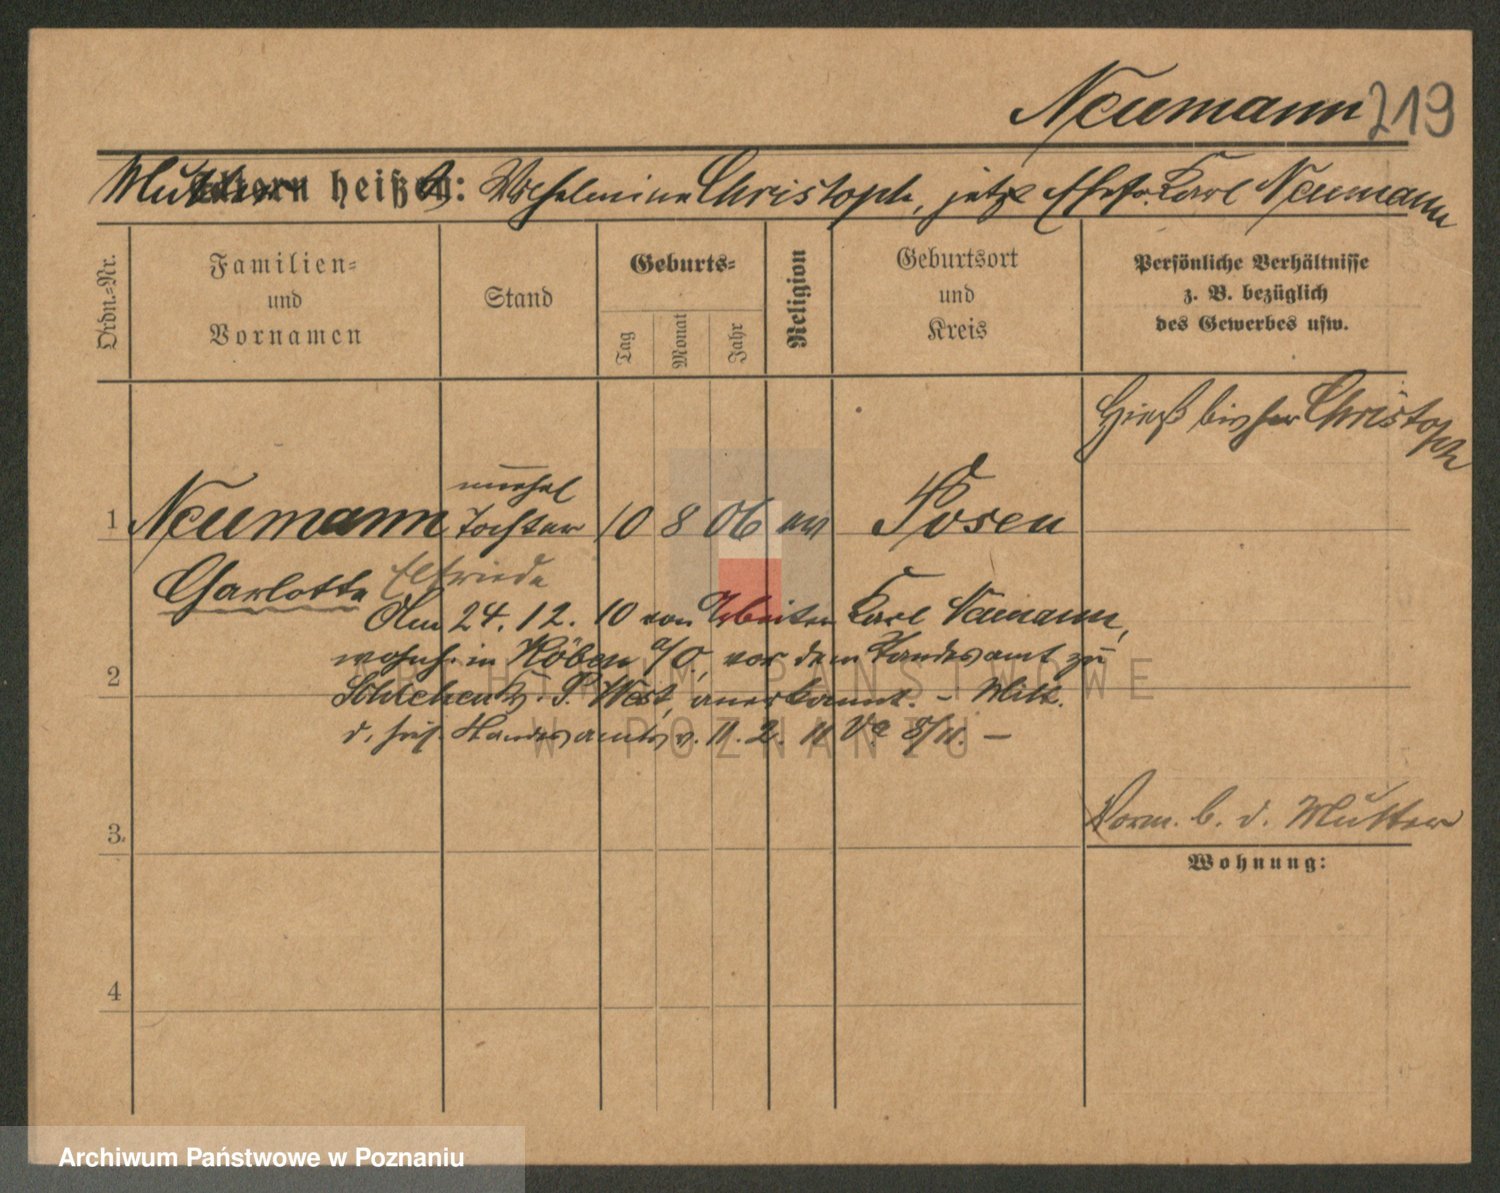 Neumann 219
Mutter heißt: Wilhelmine Christoph, jetzt Ehefr. Karl Neumann
Ordn.=Nr.
Familien=
und
Vornamen
Stand
Geburts=
Tag
Monat
Jahr
Religion
Geburtsort
und
Kreis
Persönliche Verhältnisse
z. B. bezüglich
des Gewerbes usw.
Hieß bisher Christoph
unehel
1 Neumann Tochter 10 8 06 ev Posen
Charlotte Elfriede
Am 24. 12. 10 von Arbeiter Karl Neumann,
wohnh. in Köben a/O, vor dem Standesamt zu
2
P. West, anerkannt. – Mitt.
d. Standesamts v. 11. 2. 11 8/11. –
3.
Vorm. b. d. Mutter
Wohnung:
4
ARCHIWUM PAŃSTWOWE
W POZNANIU
Archiwum Państwowe w Poznaniu